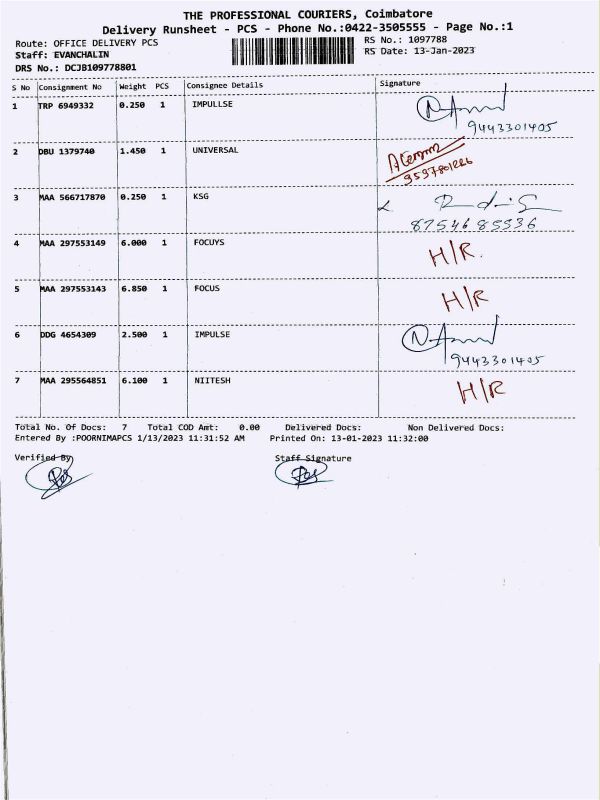 THE PROFESSIONAL COURIERS, Coimbatore
Delivery Runsheet - PCS - Phone No.:0422-3505555 - Page No.:1
Route: OFFICE DELIVERY PCS RS No.: 1097788
Staff: EVANCHALIN RS Date: 13-Jan-2023
DRS No.: DCJB109778801
S No Consignment No Weight PCS Consignee Details Signature
1 TRP 6949332 0.250 1 IMPULLSE
9443301405
2 DBU 1379740 1.450 1 UNIVERSAL
3 MAA 566717870 0.250 1 KSG
8754685536
4 MAA 297553149 6.000 1 FOCUYS H/R.
5 MAA 297553143 6.850 1 FOCUS H/R
6 DDG 4654309 2.500 1 IMPULSE
9443301405
7 MAA 295564851 6.100 1 NIITESH H/R
Total No. Of Docs: 7 Total COD Amt: 0.00 Delivered Docs: Non Delivered Docs:
Entered By :POORNIMAPCS 1/13/2023 11:31:52 AM Printed On: 13-01-2023 11:32:00
Verified By Staff Signature